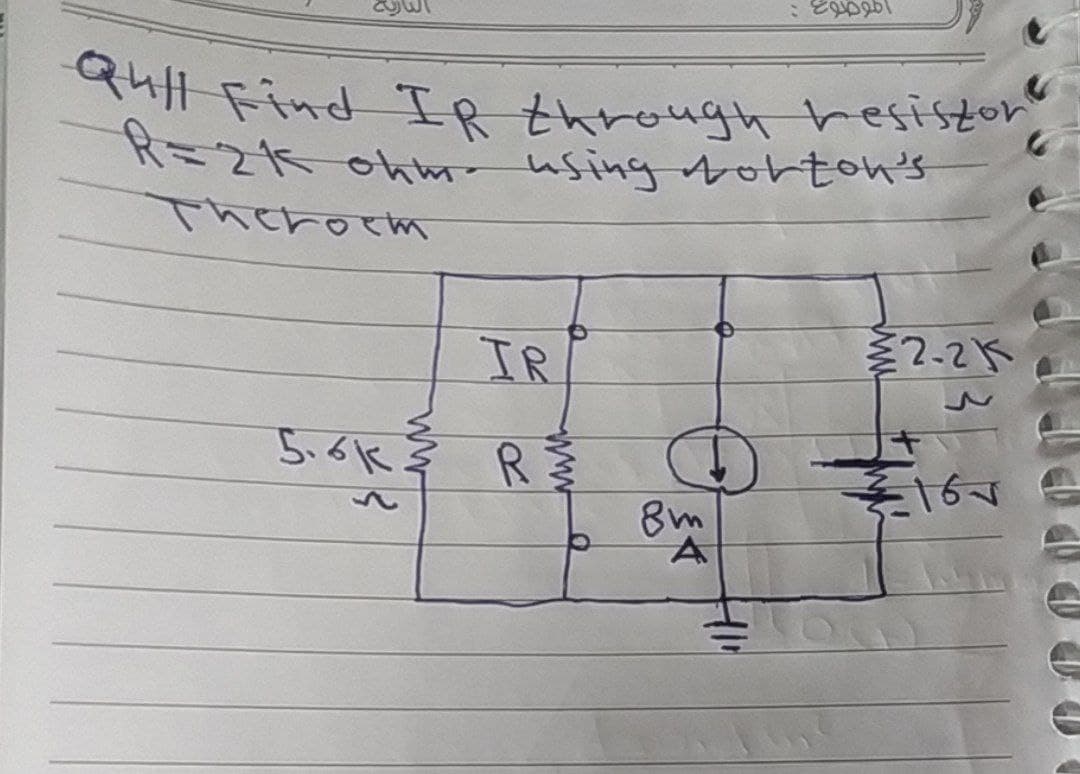 التاريخ
الموضوع :
Q4// Find IR through resistor
R=2K ohm. using Norton's
Theroem
IR
2.2K
5.6K
R
+
16V
-
8m
A